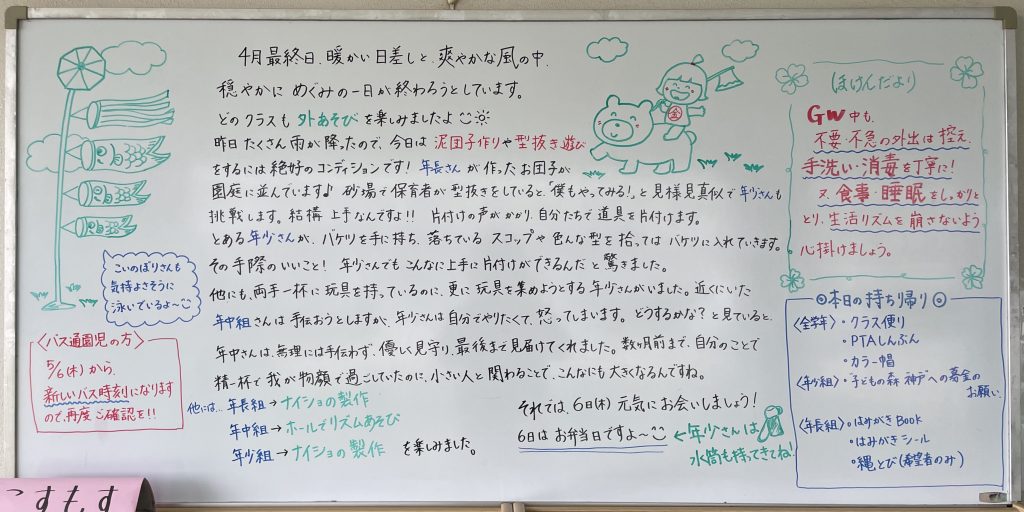 4月最終日、暖かい日差しと、爽やかな風の中、
穏やかに めぐみの一日が終わろうとしています。
どのクラスも 外あそび を楽しみましたよ
昨日 たくさん雨が降ったので、今日は 泥団子作りや型抜き遊び
をするには 絶好のコンディションです! 年長さん が作ったお団子が
園庭に並んでいます♪ 砂場で保育者が型抜きをしていると、「僕もやってみる!」と見様見真似で年少さんも
挑戦します。結構上手なんですよ!! 片付けの声がかかり、自分たちで道具を片付けます。
とある年少さんが、バケツを手に持ち、落ちている スコップや色んな型を拾っては バケツに入れていきます。
その手際のいいこと! 年少さんでもこんなに上手に片付けができるんだ と驚きました。
他にも、両手一杯に玩具を持っているのに、更に玩具を集めようとする年少さんがいました。近くにいた
年中組さんは手伝おうとしますが、年少さんは自分でやりたくて、怒ってしまいます。どうするかな?と見ていると、
年中さんは、無理には手伝わず、優しく見守り、最後まで見届けてくれました。数ヶ月前まで、自分のことで
精一杯で 我が物顔で過ごしていたのに、小さい人と関わることで、こんなにも大きくなるんですね。
他には… 年長組→ナイショの製作
年中組→ホールでリズムあそび
年少組→ナイショの製作 を楽しみました。
それでは、6日(木) 元気にお会いしましょう!
6日はお弁当日ですよ〜
←年少さんは
水筒も持ってきてね!
こいのぼりさんも
気持よさそうに
泳いでいるよ〜
<バス通園児の方>
5/6(木)から、
新しいバス時刻になります
ので、再度ご確認を!!
ほけんだより
GW中も、
不要・不急の外出は控え、
手洗い・消毒を丁寧に!
又、食事・睡眠をしっかりと
とり、生活リズムを崩さないよう
心掛けましょう。
◎本日の持ち帰り◎
<全学年>・クラス便り
・PTAしんぶん
・カラー帽
<年少組>・"子どもの森 神戸"への募金の
お願い
<年長組>・はみがきBook
・はみがきシール
・縄とび(希望者のみ)
金
こすもす